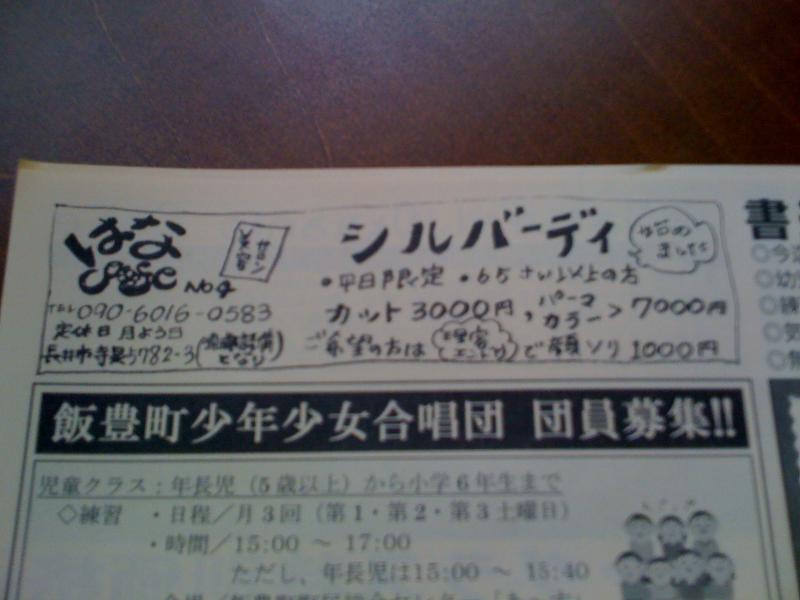 はな
美容
サロン
シルバーディ
No.4
・平日限定 ・65さい以上の方
TEL 090-6016-0583
カット3000円, パーマ カラー > 7000円
定休日 月よう日
長井市寺泉5782-3
となり
ご希望の方は
で顔ソリ 1000円
飯豊町少年少女合唱団 団員募集!!
児童クラス：年長児（5歳以上）から小学6年生まで
◇練習 ・日程／月3回（第1・第2・第3土曜日）
・時間／15:00 ～ 17:00
ただし、年長児は15:00 ～ 15:40
書
◎今
◎幼
◎練
◎気
◎無